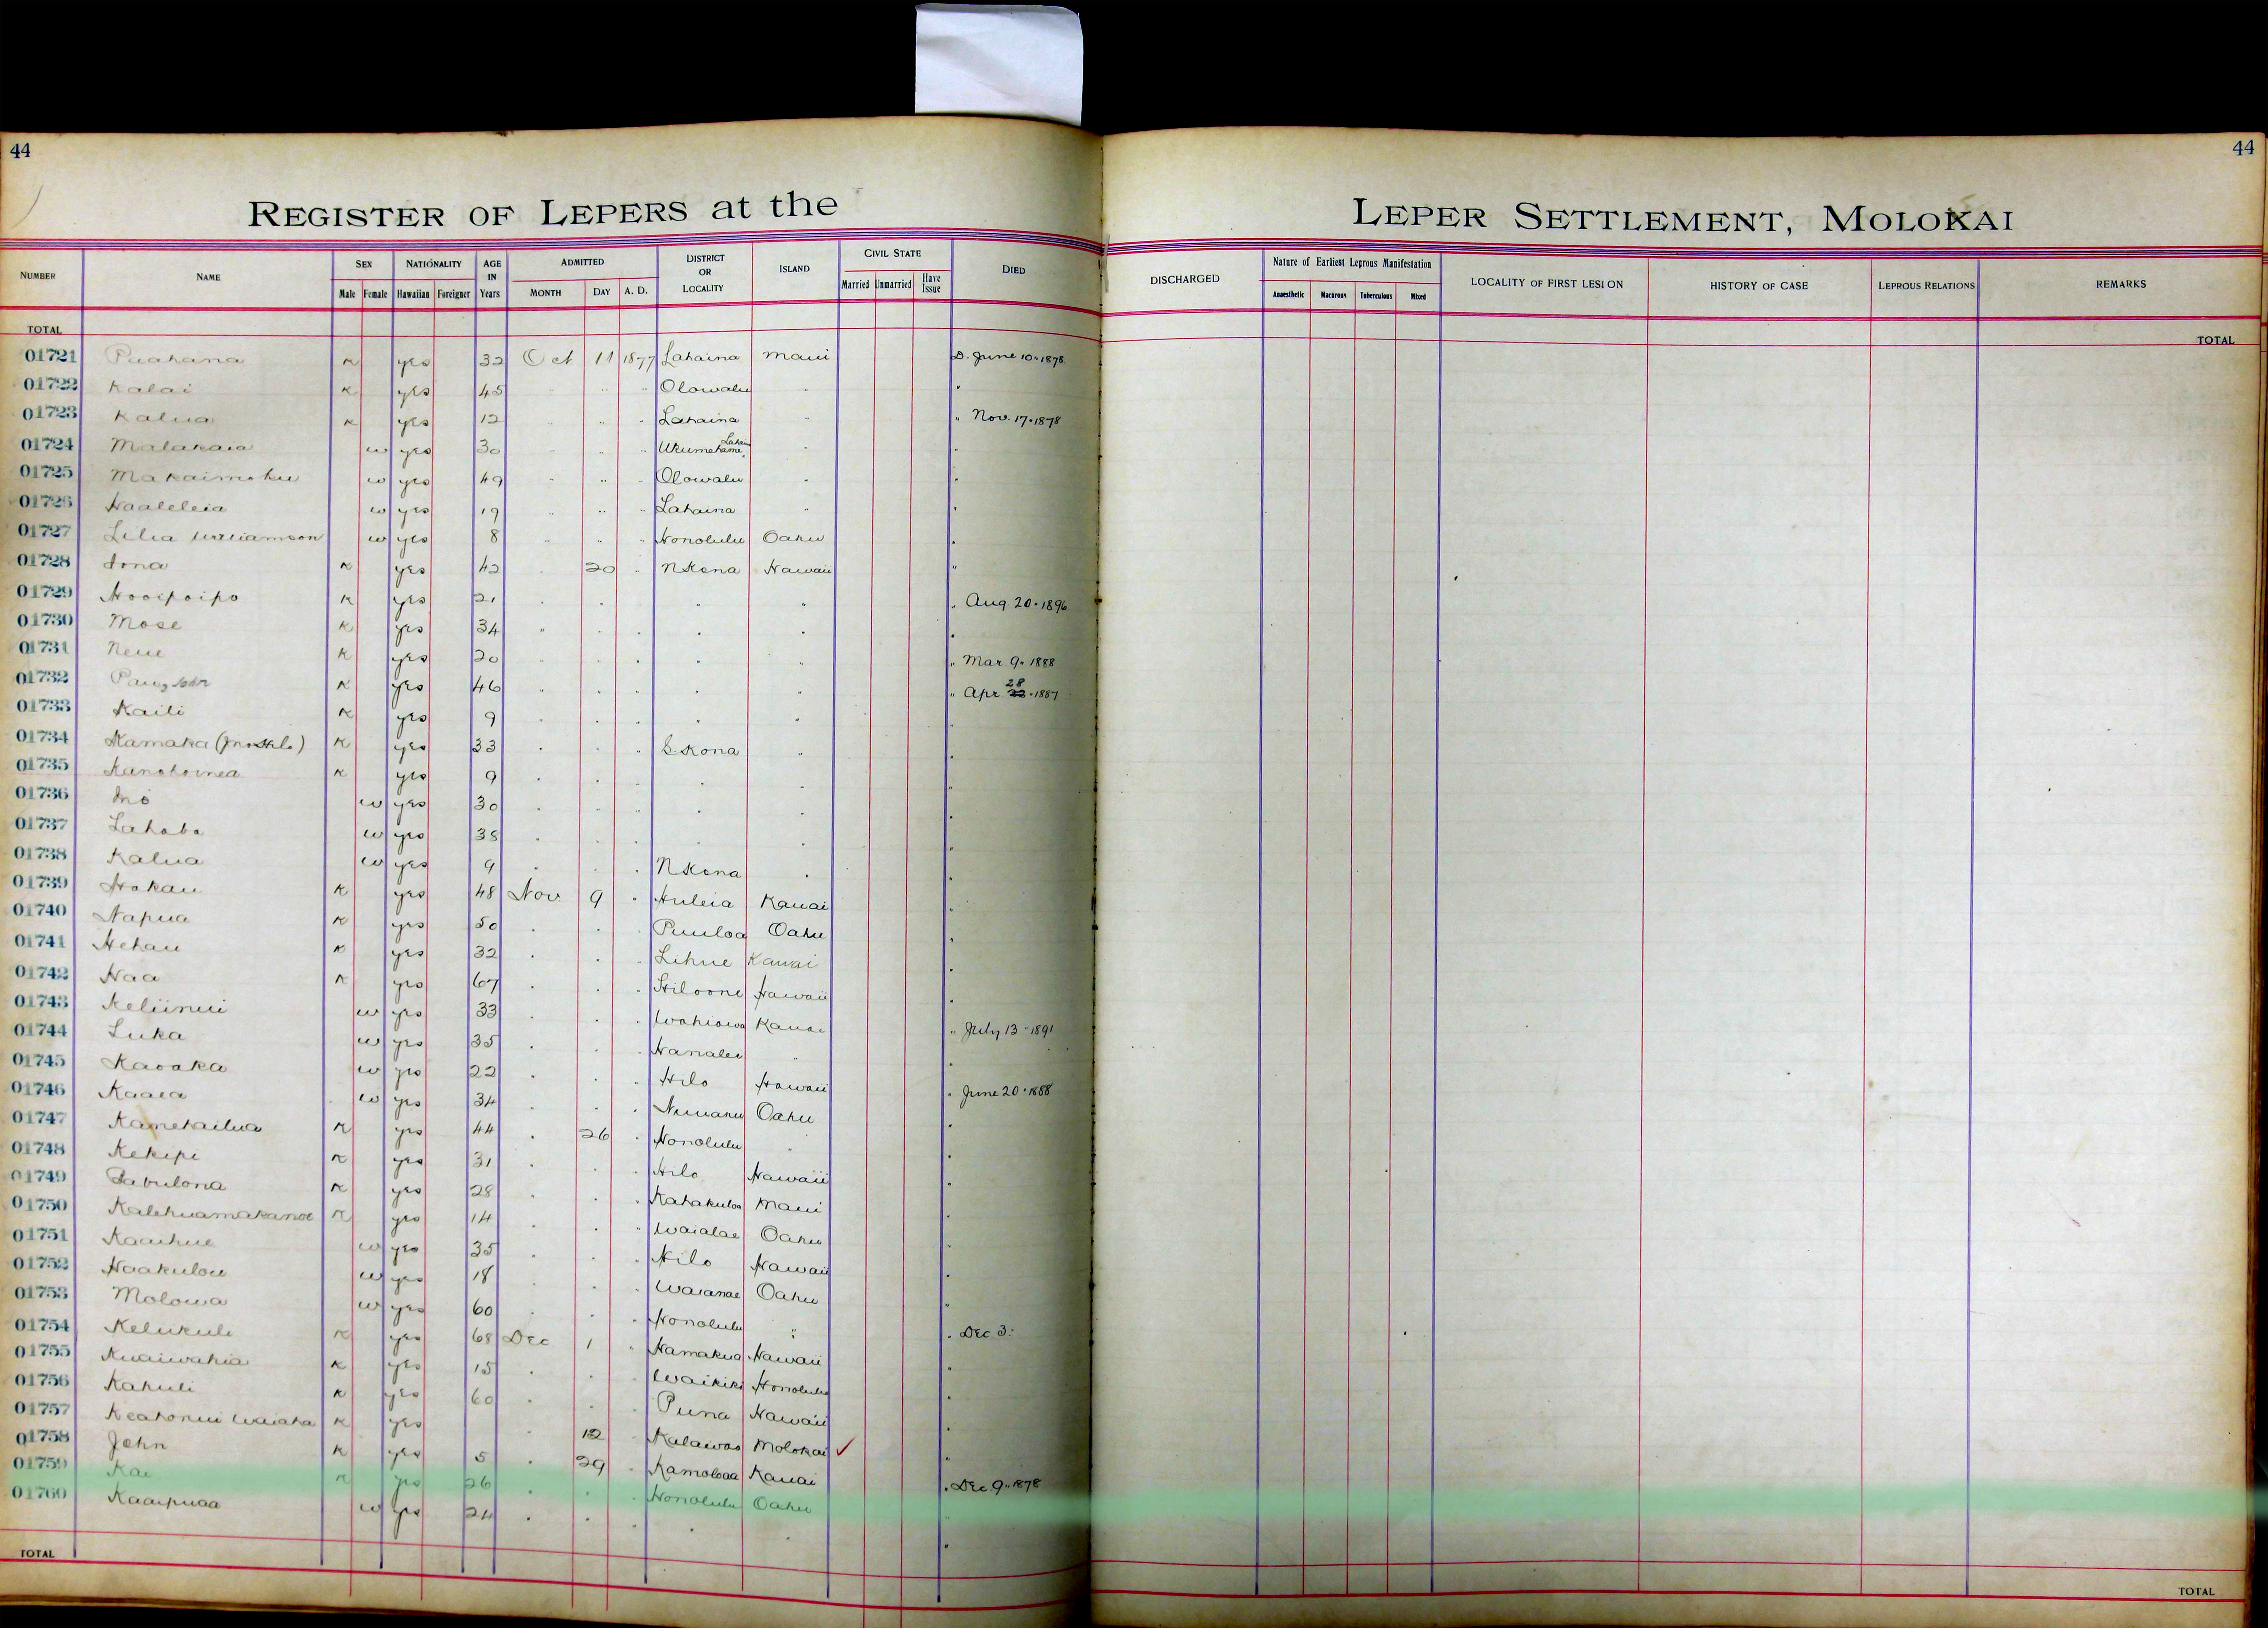 44
44
REGISTER OF LEPERS at the LEPER SETTLEMENT, MOLOKAI
NUMBER NAME SEX NATIONALITY AGE IN Years ADMITTED DISTRICT OR LOCALITY ISLAND CIVIL STATE DIED DISCHARGED Nature of Earliest Leprous Manifestation LOCALITY OF FIRST LESION HISTORY OF CASE LEPROUS RELATIONS REMARKS
Male Female Hawaiian Foreigner MONTH DAY A. D. Married Unmarried Have Issue Anaesthetic Macurous Tuberculous Mixed
TOTAL TOTAL
01721 Puahana K yes 32 Oct 11 1877 Lahaina Maui D. June 10 1878
01722 Kalai K yes 45 " " Olowalu " "
01723 Kalua K yes 12 " " " Lahaina " " Nov. 17 1878
01724 Malakaia w yes 30 " " " Ukumehame, " "
01725 Makaimoku w yes 49 " " " Olowalu " "
01726 Haaleleia w yes 19 " " " Lahaina " "
01727 Lilia Williamson w yes 8 " " " Honolulu Oahu "
01728 Iona K yes 42 " 20 " N Kona Hawaii "
01729 Hooipoipo K yes 21 " " " " " Aug. 20 1896
01730 Mose K yes 34 " " " " " "
01731 Neue K yes 20 " " " " " " Mar 9 1888
01732 John K yes 46 " " " " " " Apr 28 1887
01733 Kaili K yes 9 " " " " " "
01734 Kamaka K yes 33 " " " S. Kona " "
01735 K yes 9 " " " " " "
01736 w yes 30 " " " " " "
01737 w yes 38 " " " " " "
01738 Kalua w yes 9 " " " N Kona " "
01739 Hokau K yes 48 Nov 9 " Huleia Kauai "
01740 Napua K yes 50 " " " Puuloa Oahu "
01741 Hehau K yes 32 " " " Lihue Kauai "
01742 Naa K yes 67 " " " Hiloone Hawaii "
01743 Keliinui w yes 33 " " " Wahiawa Kauai " July 13 1891
01744 Luka w yes 35 " " " Hanalei " "
01745 Kaoaka w yes 22 " " " Hilo Hawaii " June 20 1888
01746 Kaaea w yes 34 " " " Nuuanu Oahu "
01747 Kamekailua K yes 44 " 26 " Honolulu " "
01748 Kekipi K yes 31 " " " Hilo Hawaii "
01749 Sabulona K yes 28 " " " Kahakuloa Maui "
01750 Kalehuamakanoe K yes 14 " " " Waialae Oahu "
01751 Kaaihue w yes 35 " " " Hilo Hawaii "
01752 Haakulou w yes 18 " " " Waianae Oahu "
01753 Molowa w yes 60 " " " Honolulu " " Dec 3.
01754 Kelukuli K yes 68 Dec 1 " Hamakua Hawaii "
01755 Kuaiwahia K yes 15 " " Waikiki Honolulu "
01756 Kahuli K yes 60 " " Puna Hawaii "
01757 Keahonui Waiaha K yes " 12 Kalawao Molokai ✓ "
01758 John K yes 5 " 29 " Kamoloaa Kauai " Dec 9 1878
01759 Kai K yes 26 " " " Honolulu Oahu "
01760 Kaaipuaa w yes 24 " " " " " "
TOTAL TOTAL